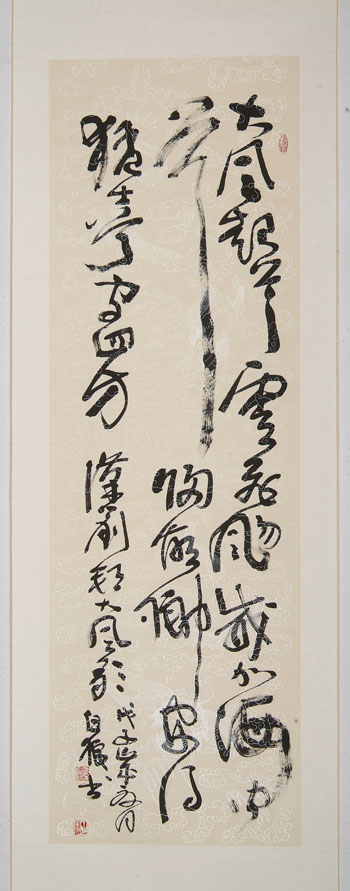 大風起兮雲飛颺威加海内
兮歸故鄉安得
猛士兮守四方 漢劉邦大風歌
戊子
白書